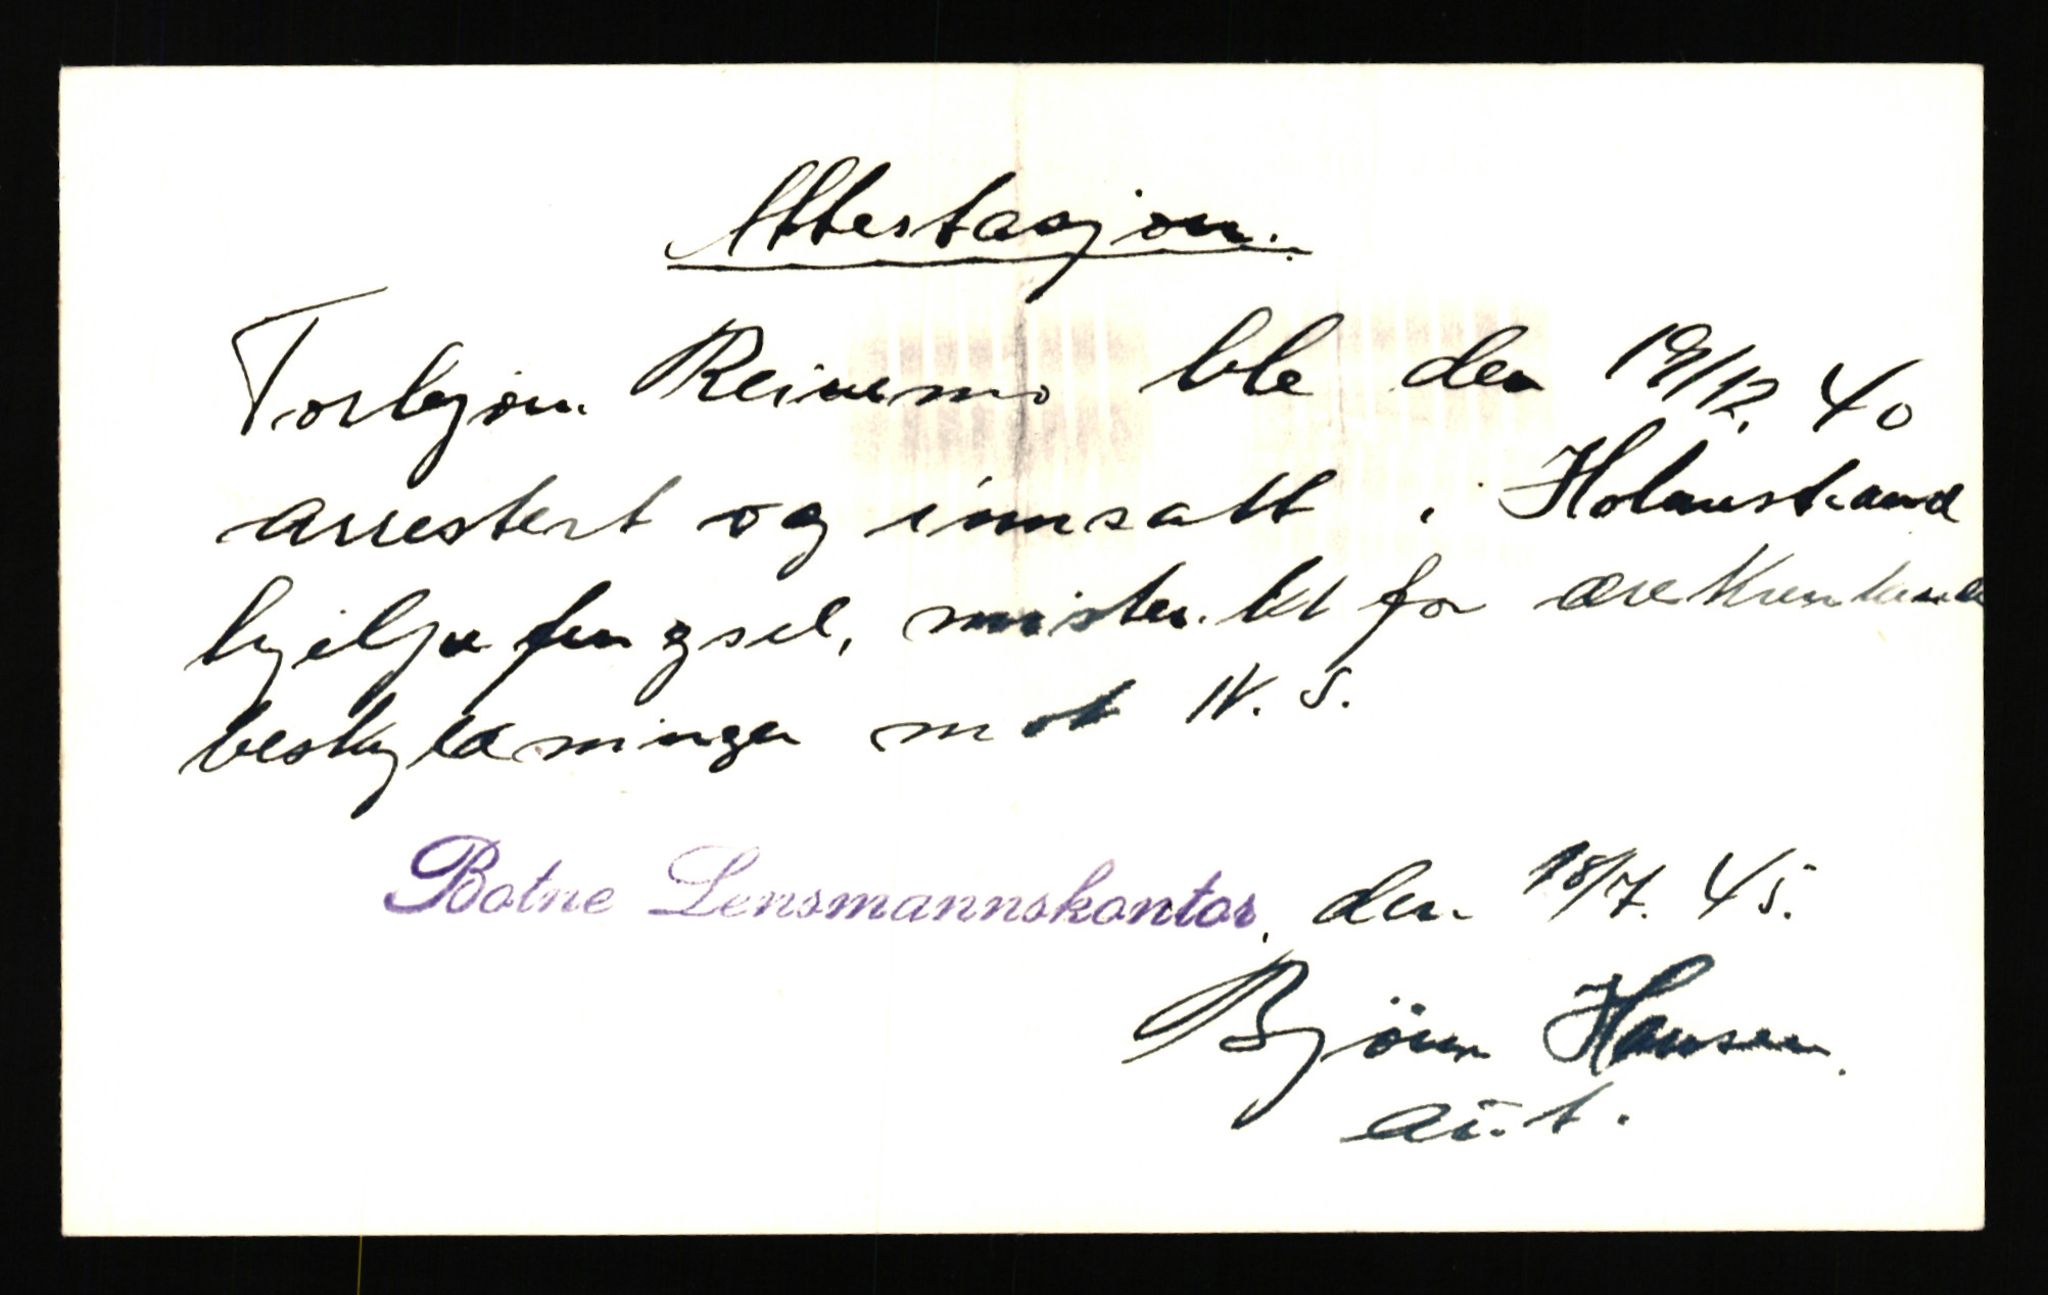 Attestasjon.
Torbjørn Reinemo ble den 19/12. 40
arrestert og innsatt i Holmestrand
hjelpefengsel, mistenkt for ærekrenkende
beskyldninger mot N. S.
Botne Lensmannskontor, den 18/7. 45.
Björn Hansen.
aut.